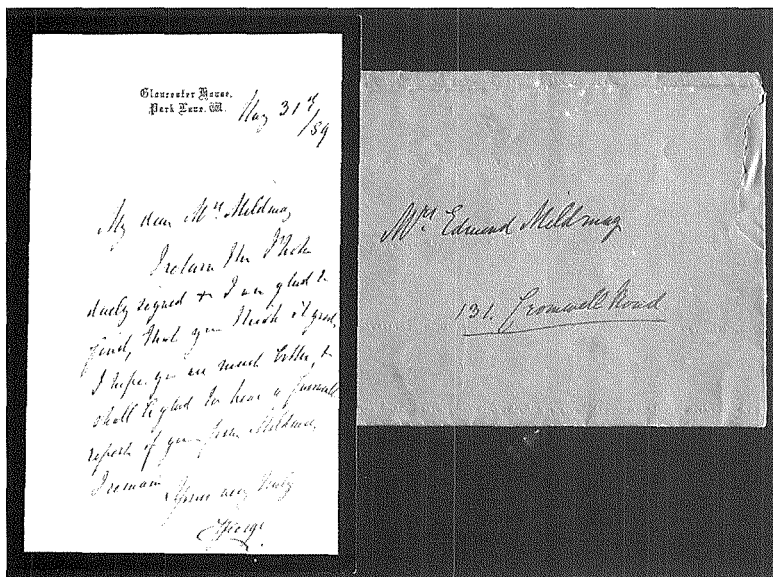 Gloucester House,
Park Lane. W.
May 31st
/89
My dear Mrs Mildmay
I return the Photo
duly signed & I am glad to
find, that you think it good,
I hope you are much better, &
shall be glad to hear a
report of you from Mildmay,
I remain
Yours very truly
George
Mrs Edmund Mildmay
131. Cromwell Road